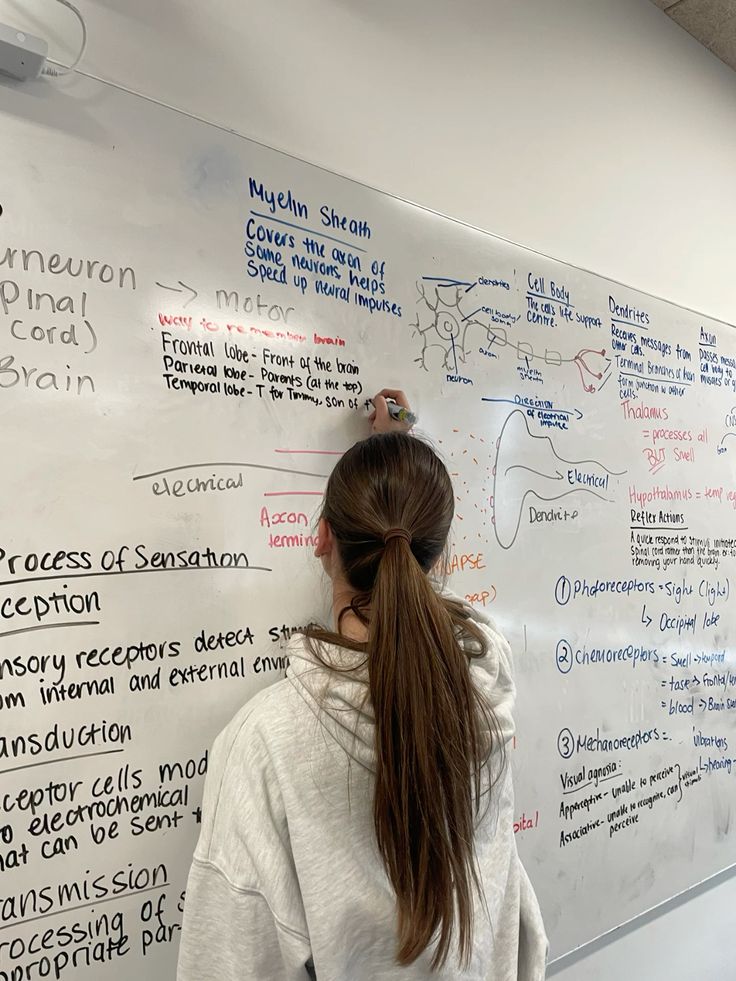 Myelin Sheath
Covers the axon of
Some neurons, helps
Speed up neural impulses
motor
Spinal
cord)
Brain
Way to remember brain
Frontal lobe - Front of the brain
Parietal lobe - Parents (at the top)
Temporal lobe - T for Timmy, son of
electrical
Axon
Process of Sensation
ception
nsory receptors detect
om internal and external
ansduction
ceptor cells
o electrochemical
hat can be sent
ansmission
rocessing of
propriate
dendrites
cell body
soma
axon
myelin
sheath
neuron
Cell Body
The cell's life support
Centre.
Dendrites
Receives messages from
other cells.
Terminal Branches of Axon
form junction w other
cells.
Axon
Passes
cell body to
DIRECTION
of electrical
impulse
Electrical
Dendrite
Thalamus
= processes all
BUT Smell
Hypothalamus = temp
Reflex Actions
A quick respond to stimuli
Spinal cord rather than the brain
removing your hand quickly.
① Photoreceptors = Sight (light)
↳ Occipital lobe
② chemoreceptors = Smell →
= taste → Frontal
= blood → Brain
③ Mechanoreceptors = vibrations
↳ hearing
Visual agnosia:
Apperceptive - unable to perceive
Associative - unable to recognise, can
perceive
visual
stimuli